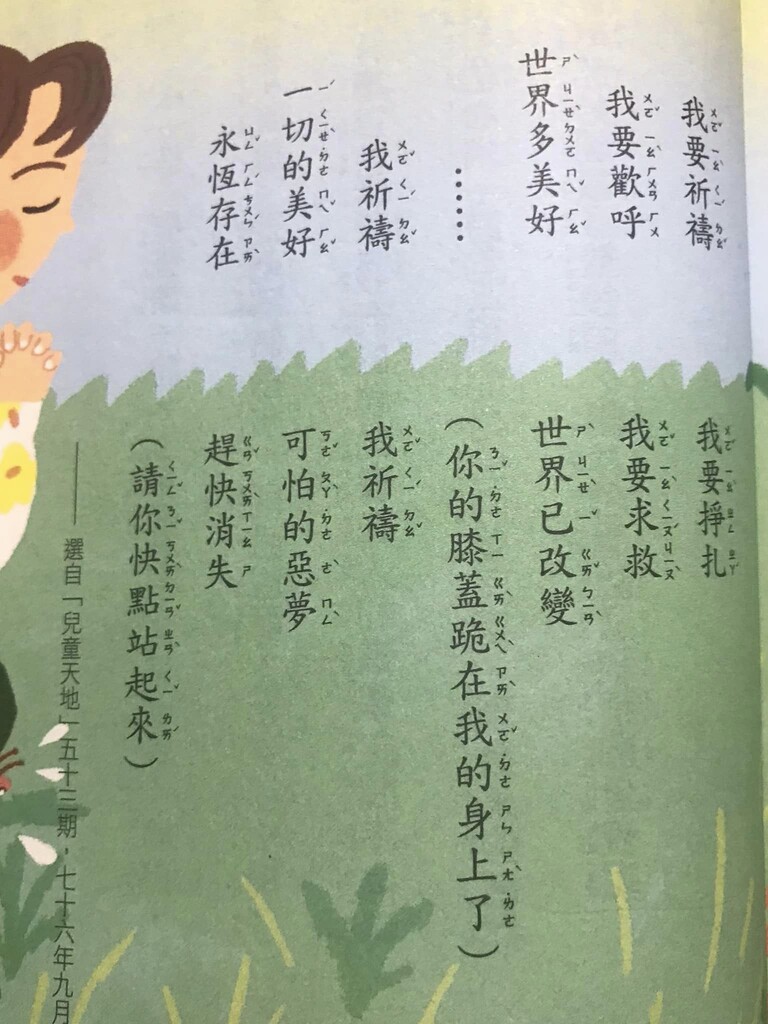 我要祈禱
我要歡呼
世界多美好
……
我祈禱
一切的美好
永恆存在
我要掙扎
我要求救
世界已改變
（你的膝蓋跪在我的身上了）
我祈禱
可怕的惡夢
趕快消失
（請你快點站起來）
——選自「兒童天地」五十三期，七十六年九月